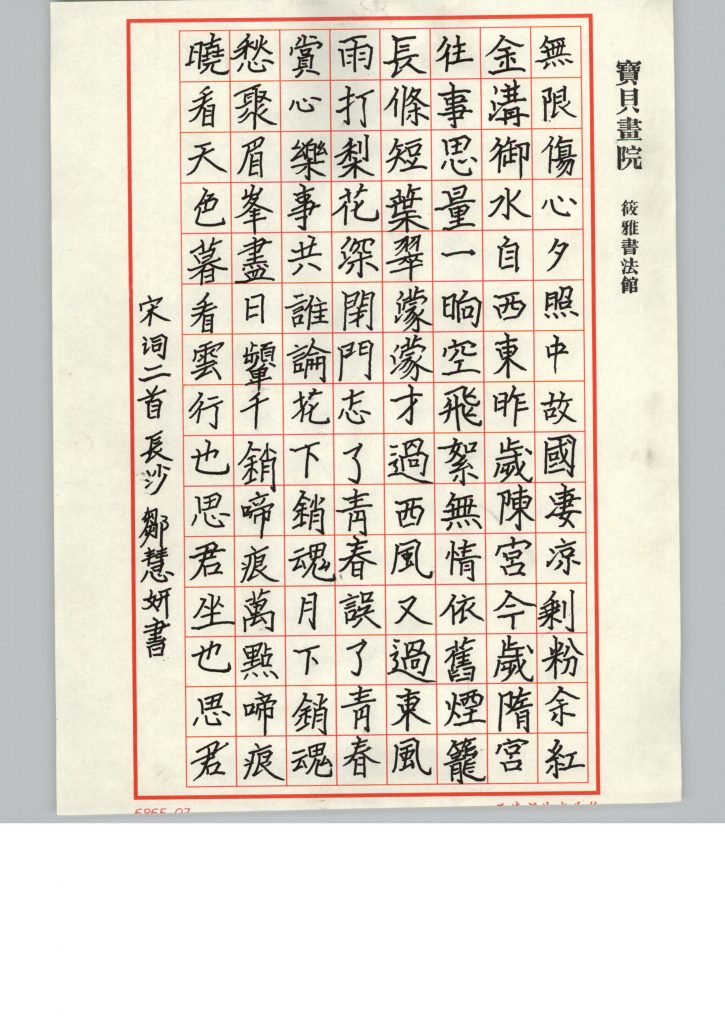 寶貝畫院 筱雅書法館
無限傷心夕照中故國凄凉剩粉余紅
金溝御水自西東昨歲陳宮今歲隋宮
往事思量一晌空飛絮無情依舊煙籠
長條短葉翠濛濛才過西風又過東風
雨打梨花深閉門志了青春誤了青春
賞心樂事共誰論花下銷魂月下銷魂
愁聚眉峯盡日顰千銷啼痕萬點啼痕
曉看天色暮看雲行也思君坐也思君
宋词二首 長沙 鄒慧妍書